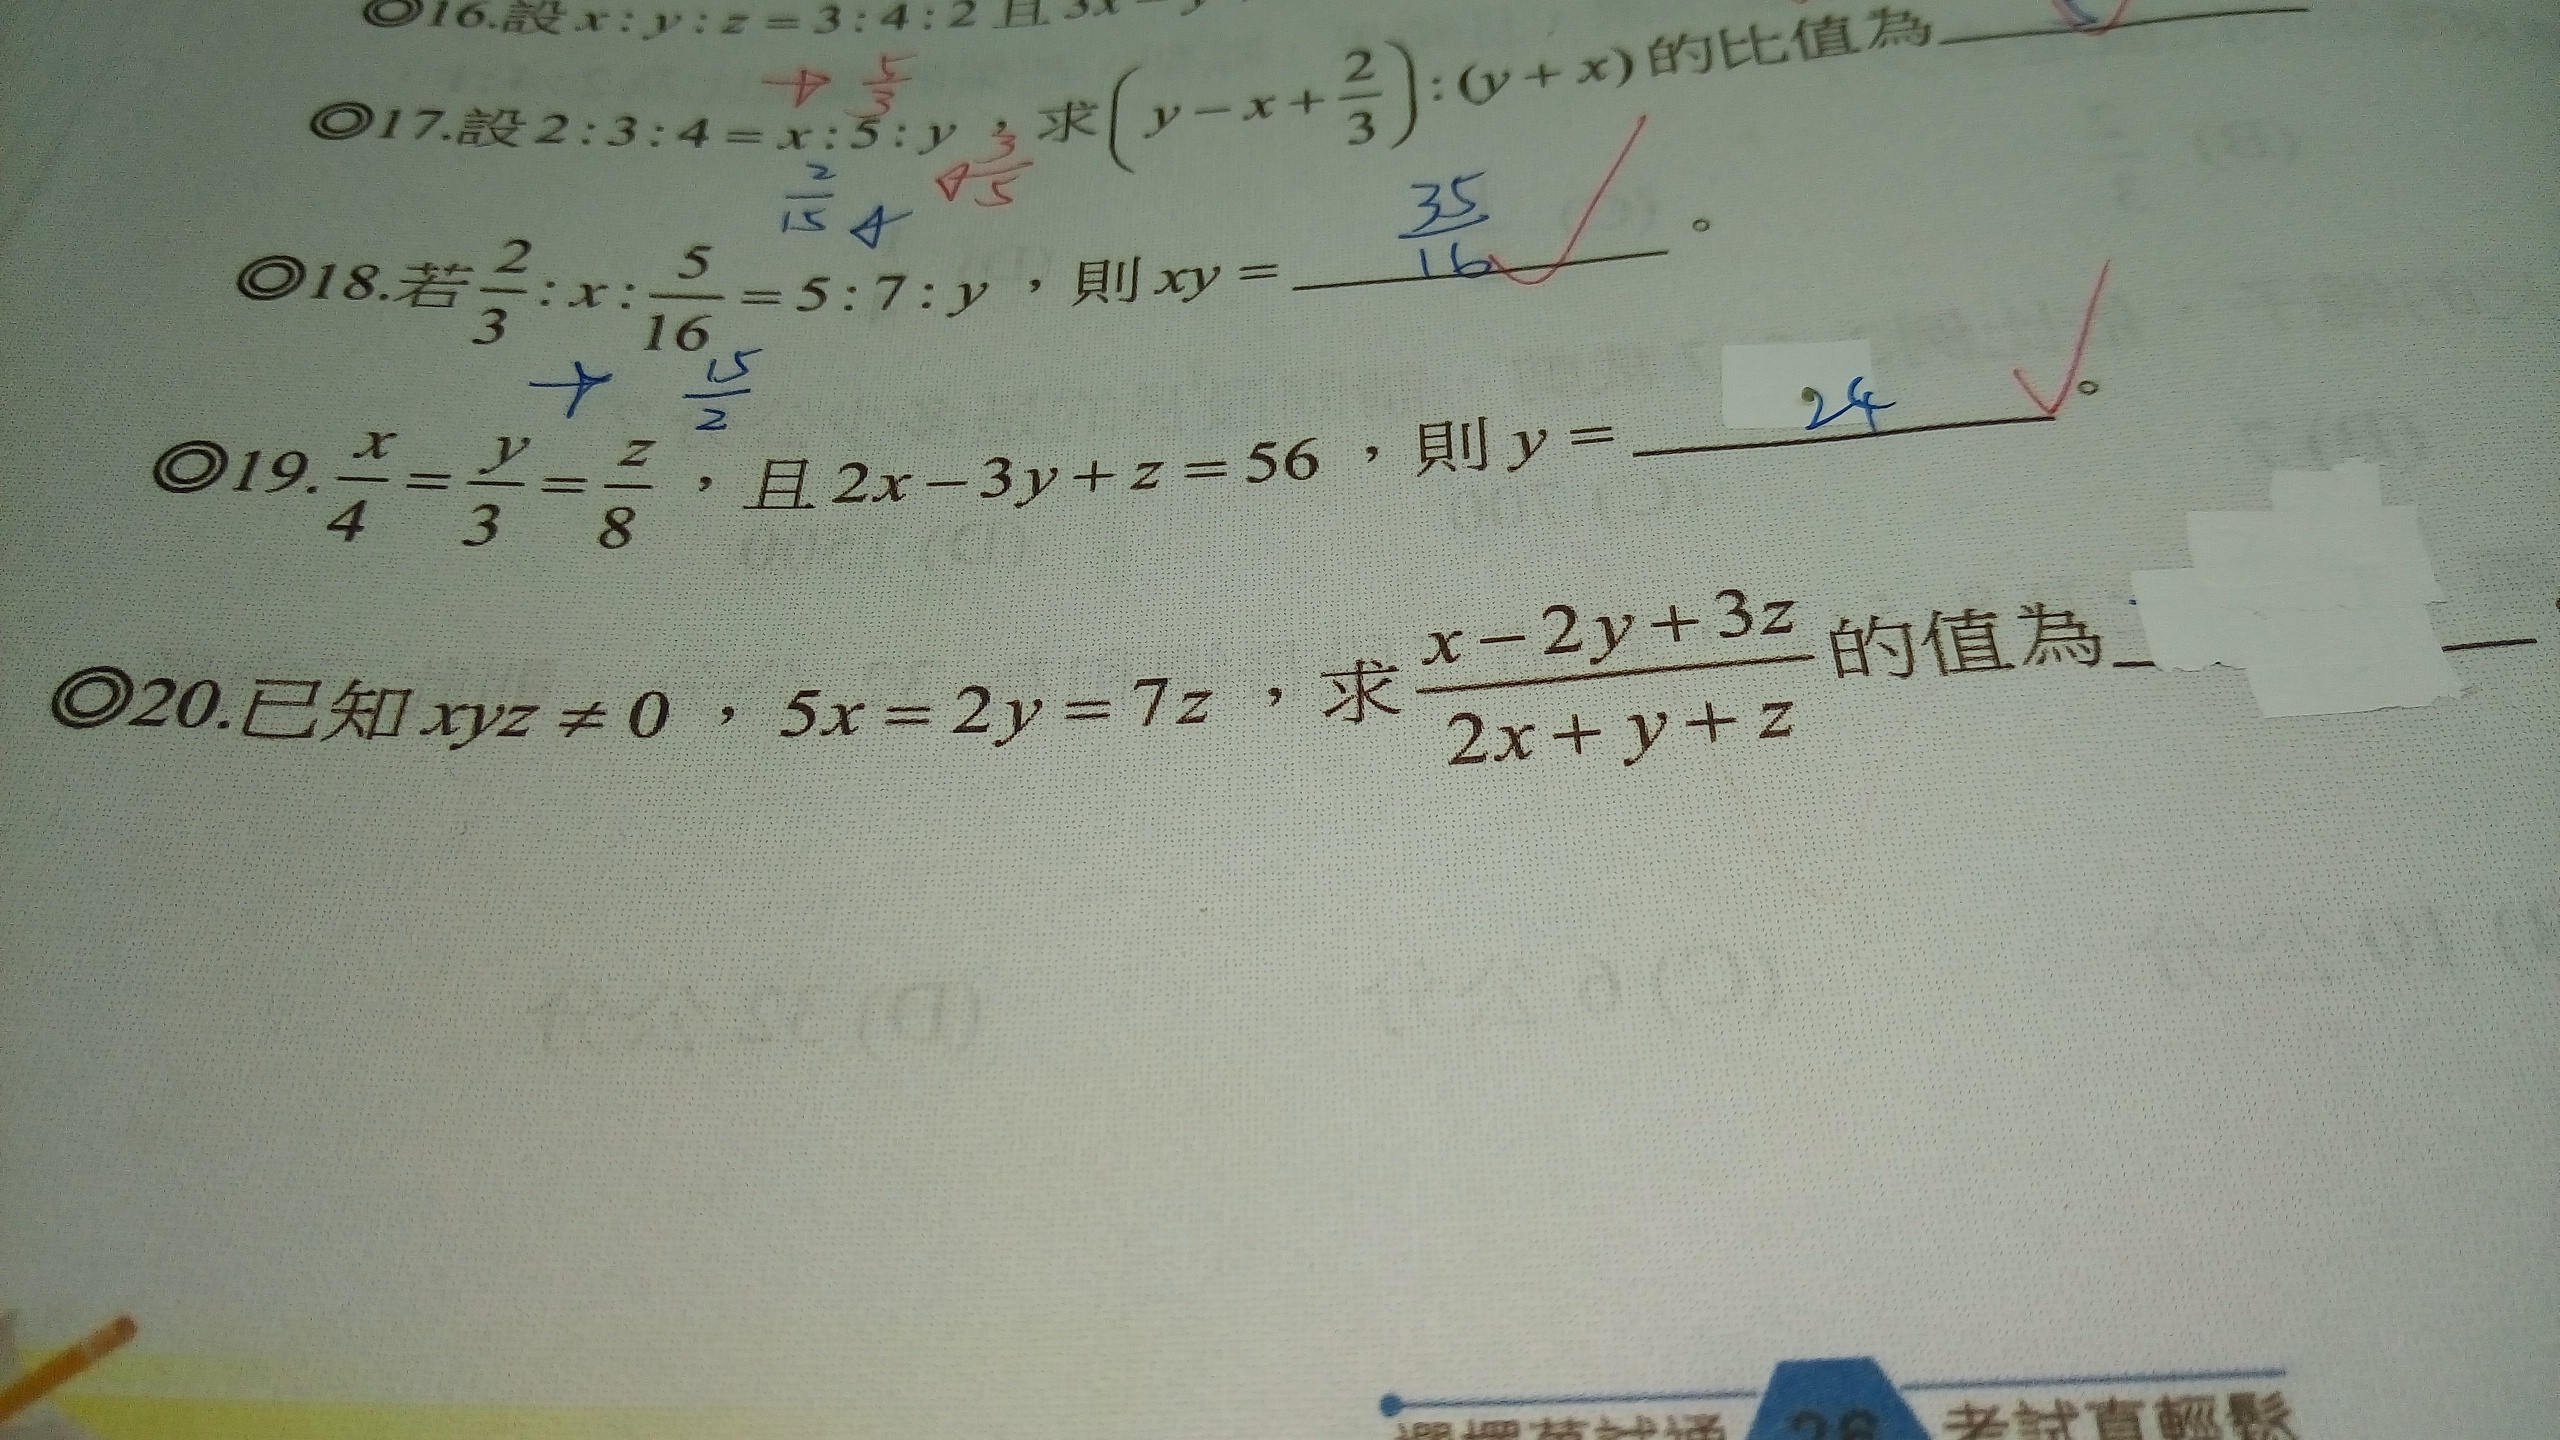 ◎16.設 x : y : z = 3 : 4 : 2 且 3x − y
→ 5/3
◎17.設 2 : 3 : 4 = x : 5 : y ,求 (y − x + 2/3) : (y + x) 的比值為
3/5
2/15
35/16
◎18.若 2/3 : x : 5/16 = 5 : 7 : y ,則 xy = 。
→ 15/2
24
◎19. x/4 = y/3 = z/8 ,且 2x − 3y + z = 56 ,則 y = 。
◎20.已知 xyz ≠ 0 , 5x = 2y = 7z ,求 (x − 2y + 3z)/(2x + y + z) 的值為
26 考試真輕鬆